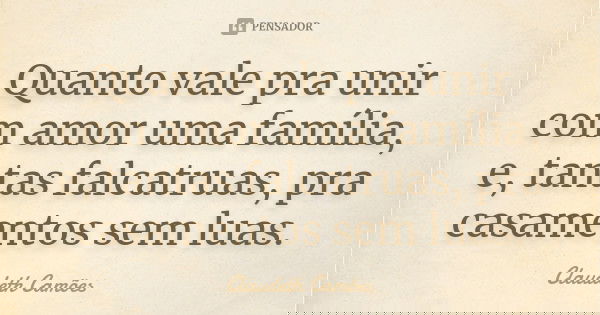 PENSADOR
Quanto vale pra unir
com amor uma família,
e, tantas falcatruas, pra
casamentos sem luas.
Claudeth Camões